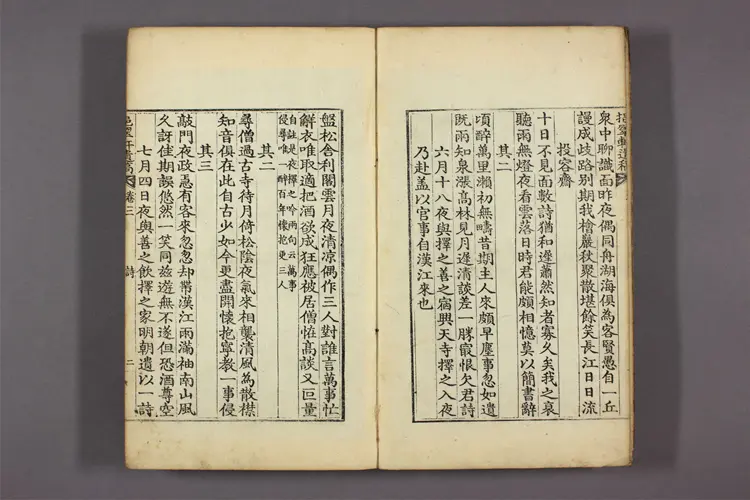 衆中聊識面昨夜偶同舟湖海俱為客賢愚自一丘
謾成歧路別期我檜巖秋聚散堪餘笑長江日日流
投容齋
十日不見面數詩猶和遲蕭然知者寡久矣我之衰
聽雨無燈夜看雲落日時君能頗相憶莫以簡書辭
其二
頃醉萬里瀨初無疇昔期主人來頗早塵事忽如遺
既雨知泉漲高林見月遲清談差一勝最恨欠君詩
六月十八夜與擇之善之宿興天寺擇之入夜
乃赴盖以官事自漢江來也
盤松舍利閣雲月夜清凉偶作三人對誰言萬事忙
觧衣唯取適把酒欲成狂應被居僧恠高談又叵量
自註是夜擇之吟雨向云萬事
侵尋唯一醉百年懷抱更三人
其二
尋僧過古寺待月倚松陰夜氣來相襲清風為散襟
知音俱在此自古少如今更盡開懷抱寧教一事侵
其三
敲門夜政急有客來忽忽却帶漢江雨滿袖南山風
久訝佳期誤悠然一笑同茲遊無不遂但恐酒尊空
七月四日夜與善之飲擇之家明朝遺以一詩
卷三
詩
二